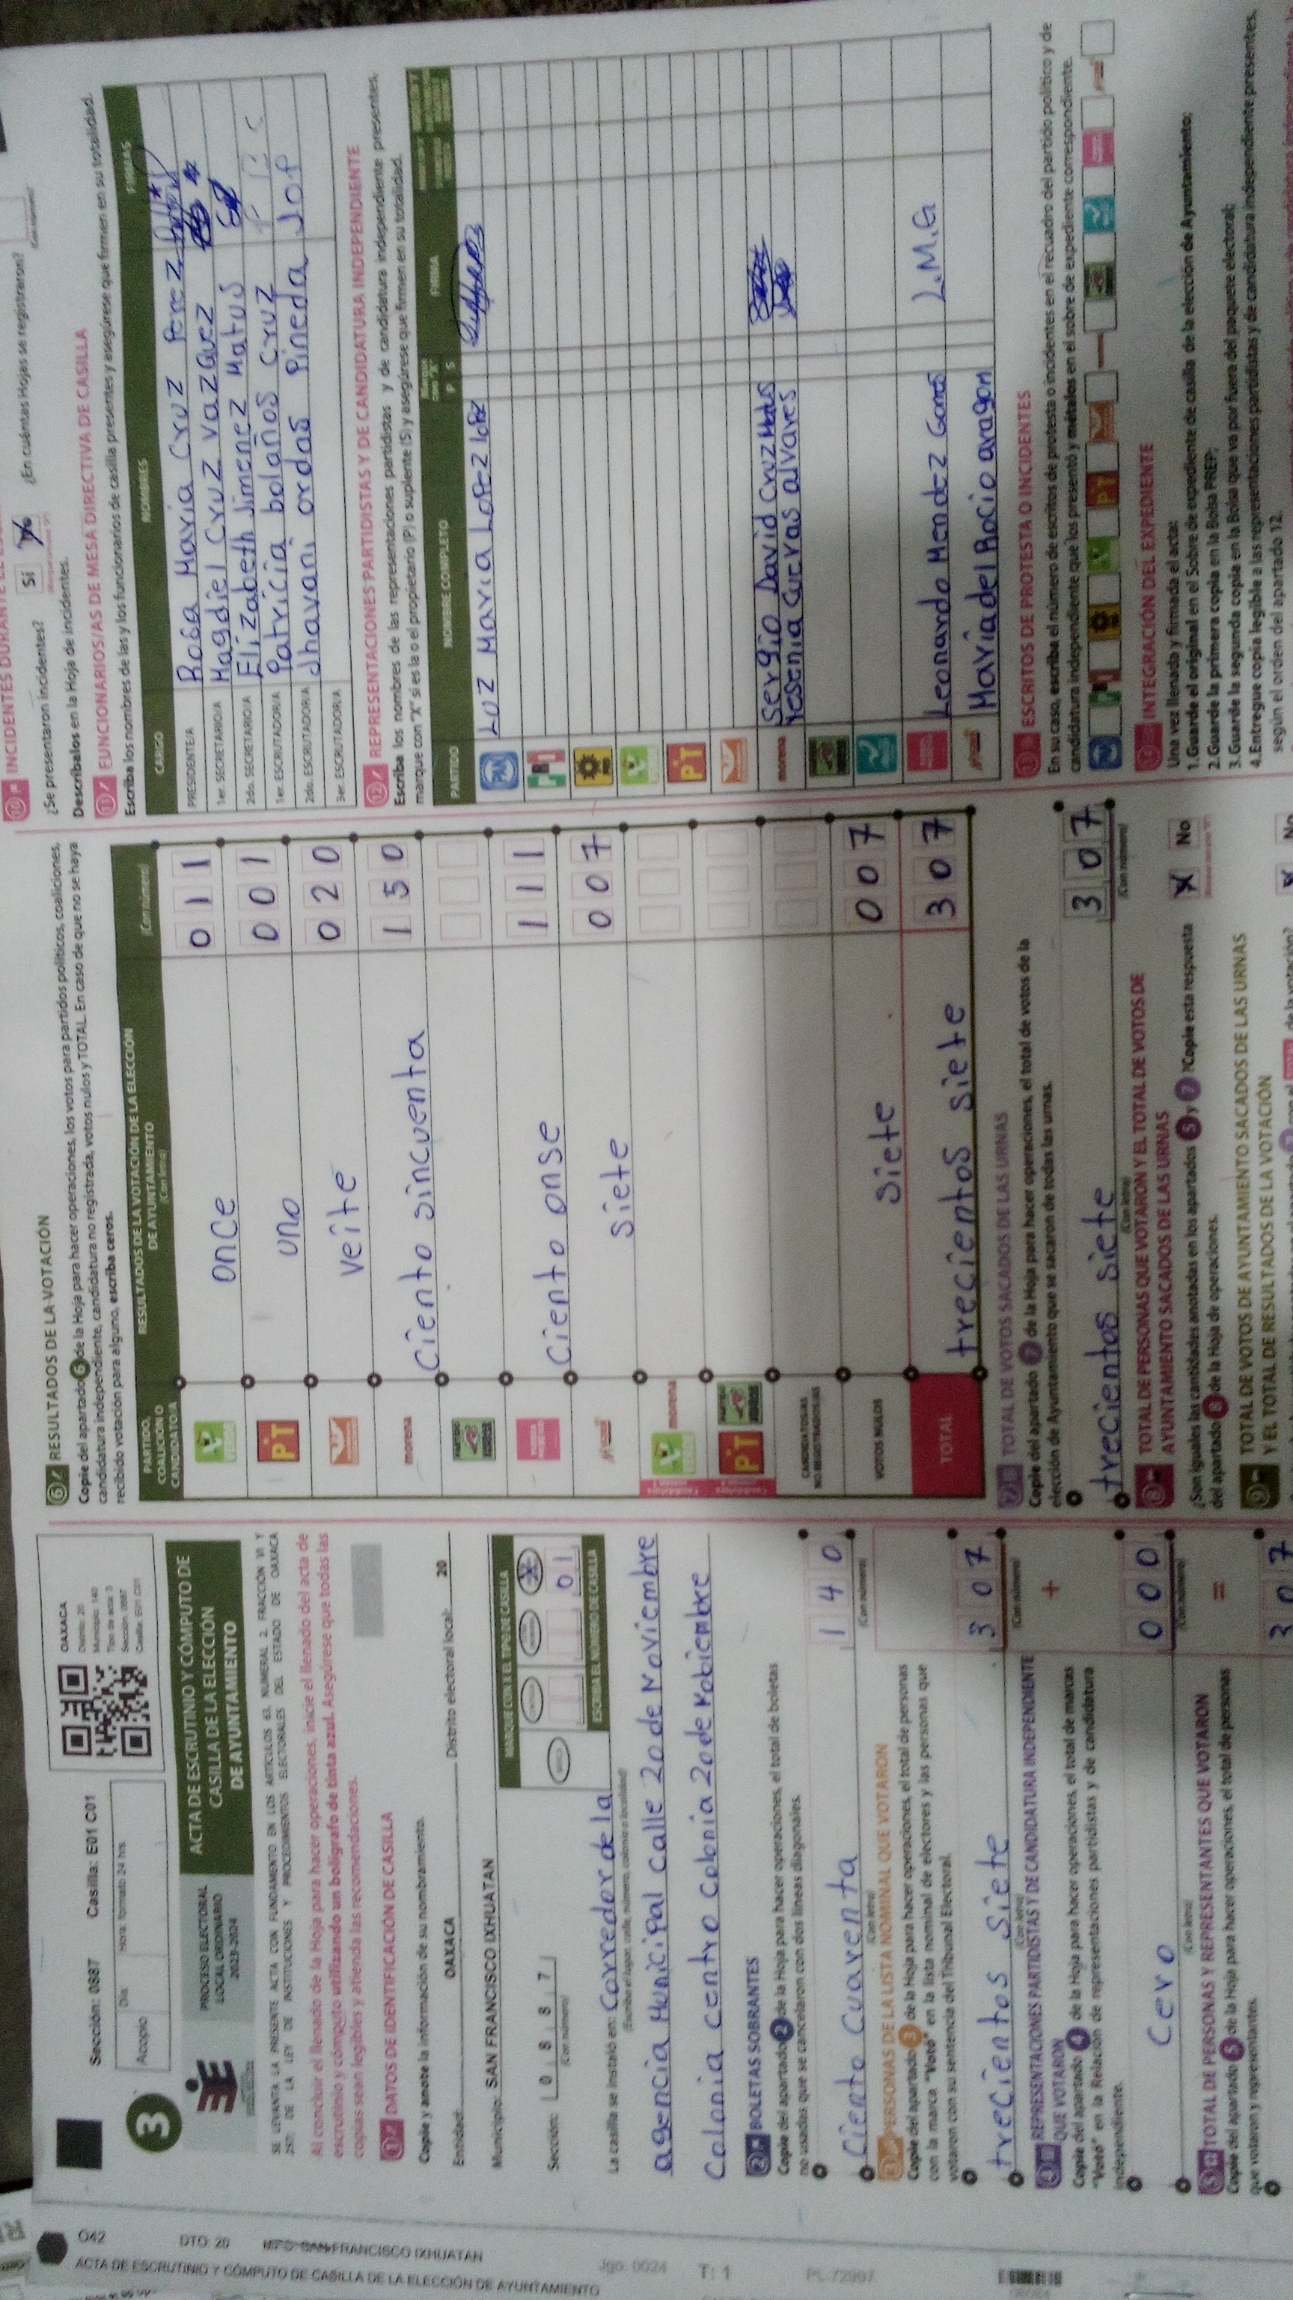 042
DTO: 20
MPO: SAN FRANCISCO IXHUATAN
ACTA DE ESCRUTINIO Y CÓMPUTO DE CASILLA DE LA ELECCIÓN DE AYUNTAMIENTO
Jgo: 0024
T: 1
Sección: 0887 Casilla: E01 C01
Acopio
Día
Hora: formato 24 hrs.
OAXACA
Distrito: 20
Municipio: 140
Tipo de acta: 3
Sección: 0887
Casilla: E01 C01
3
PROCESO ELECTORAL
LOCAL ORDINARIO
2023-2024
ACTA DE ESCRUTINIO Y CÓMPUTO DE
CASILLA DE LA ELECCIÓN
DE AYUNTAMIENTO
Al concluir el llenado de la Hoja para hacer operaciones, inicie el llenado del acta de
escrutinio y cómputo utilizando un bolígrafo de tinta azul. Asegúrese que todas las
copias sean legibles y atienda las recomendaciones.
1 DATOS DE IDENTIFICACIÓN DE CASILLA
Copie y anote la información de su nombramiento.
Entidad: OAXACA Distrito electoral local: 20
Municipio: SAN FRANCISCO IXHUATAN
MARQUE CON X EL TIPO DE CASILLA
Sección: 0 8 8 7
(Con número)
0 1
ESCRIBA EL NÚMERO DE CASILLA
La casilla se instaló en: Corredor de la
(Escriba el lugar, calle, número, colonia o localidad)
agencia Municipal calle 20 de Noviembre
Colonia centro Colonia 20 de Nobiembre
2 BOLETAS SOBRANTES
Copie del apartado 2 de la Hoja para hacer operaciones, el total de boletas
no usadas que se cancelaron con dos líneas diagonales.
Ciento Cuarenta 1 4 0
(Con letra) (Con número)
3 PERSONAS DE LA LISTA NOMINAL QUE VOTARON
Copie del apartado 3 de la Hoja para hacer operaciones, el total de personas
con la marca "Votó" en la lista nominal de electores y las personas que
votaron con su sentencia del Tribunal Electoral.
trecientos siete 3 0 7
(Con letra) (Con número)
4 REPRESENTACIONES PARTIDISTAS Y DE CANDIDATURA INDEPENDIENTE
QUE VOTARON
+
Copie del apartado 4 de la Hoja para hacer operaciones, el total de marcas
"Votó" en la Relación de representaciones partidistas y de candidatura
independiente.
Cero 0 0 0
(Con letra) (Con número)
5 TOTAL DE PERSONAS Y REPRESENTANTES QUE VOTARON
=
Copie del apartado 5 de la Hoja para hacer operaciones, el total de personas
que votaron y representantes.
3 0 7
6 RESULTADOS DE LA VOTACIÓN
Copie del apartado 6 de la Hoja para hacer operaciones, los votos para partidos políticos, coaliciones,
candidatura independiente, candidatura no registrada, votos nulos y TOTAL. En caso de que no se haya
recibido votación para alguno, escriba ceros.
PARTIDO,
COALICIÓN O
CANDIDATO/A
RESULTADOS DE LA VOTACIÓN DE LA ELECCIÓN
DE AYUNTAMIENTO
(Con letra)
(Con número)
VERDE once 0 1 1
PT uno 0 0 1
veite 0 2 0
morena Ciento sincuenta 1 5 0
Ciento onse 1 1 1
siete 0 0 7
morena
PT
CANDIDATOS/AS
NO REGISTRADOS/AS
VOTOS NULOS siete 0 0 7
TOTAL trecientos siete 3 0 7
7 TOTAL DE VOTOS SACADOS DE LAS URNAS
Copie del apartado 7 de la Hoja para hacer operaciones, el total de votos de la
elección de Ayuntamiento que se sacaron de todas las urnas.
trecientos siete 3 0 7
(Con letra) (Con número)
8 TOTAL DE PERSONAS QUE VOTARON Y EL TOTAL DE VOTOS DE
AYUNTAMIENTO SACADOS DE LAS URNAS
¿Son iguales las cantidades anotadas en los apartados 5 y 7? Copie esta respuesta
del apartado 8 de la Hoja de operaciones.
No
9 TOTAL DE VOTOS DE AYUNTAMIENTO SACADOS DE LAS URNAS
Y EL TOTAL DE RESULTADOS DE LA VOTACIÓN
No
10 INCIDENTES
¿Se presentaron incidentes? Sí No ¿En cuántas Hojas se registraron?
Descríbalos en la Hoja de incidentes.
11 FUNCIONARIOS/AS DE MESA DIRECTIVA DE CASILLA
Escriba los nombres de las y los funcionarios de casilla presentes y asegúrese que firmen en su totalidad.
CARGO NOMBRES FIRMAS
PRESIDENTE/A Rosa Maria Cruz Perez
1er. SECRETARIO/A Magdiel Cruz Vazquez
2do. SECRETARIO/A Elizabeth Jimenez Matus
1er. ESCRUTADOR/A Patricia bolaños Cruz
2do. ESCRUTADOR/A Jhavani ordas Pineda JOP
3er. ESCRUTADOR/A
12 REPRESENTACIONES PARTIDISTAS Y DE CANDIDATURA INDEPENDIENTE
Escriba los nombres de las representaciones partidistas y de candidatura independiente presentes,
marque con "X" si es la o el propietario (P) o suplente (S) y asegúrese que firmen en su totalidad.
PARTIDO NOMBRE COMPLETO P S FIRMA
PAN LUZ Maria Lopez Lopez
PRI
PRD
VERDE
PT
morena Sergio David Cruz Matus
Yesenia Cueras alvares
Leonardo Mendez Gomes L.M.G
Maria del Rocio aragon
13 ESCRITOS DE PROTESTA O INCIDENTES
En su caso, escriba el número de escritos de protesta o incidentes en el recuadro del partido político y de
candidatura independiente que los presentó y métalos en el sobre de expediente correspondiente.
14 INTEGRACIÓN DEL EXPEDIENTE
Una vez llenada y firmada el acta:
1.Guarde el original en el Sobre de expediente de casilla de la elección de Ayuntamiento;
2.Guarde la primera copia en la Bolsa PREP;
3.Guarde la segunda copia en la Bolsa que va por fuera del paquete electoral;
4.Entregue copia legible a las representaciones partidistas y de candidatura independiente presentes,
según el orden del apartado 12.